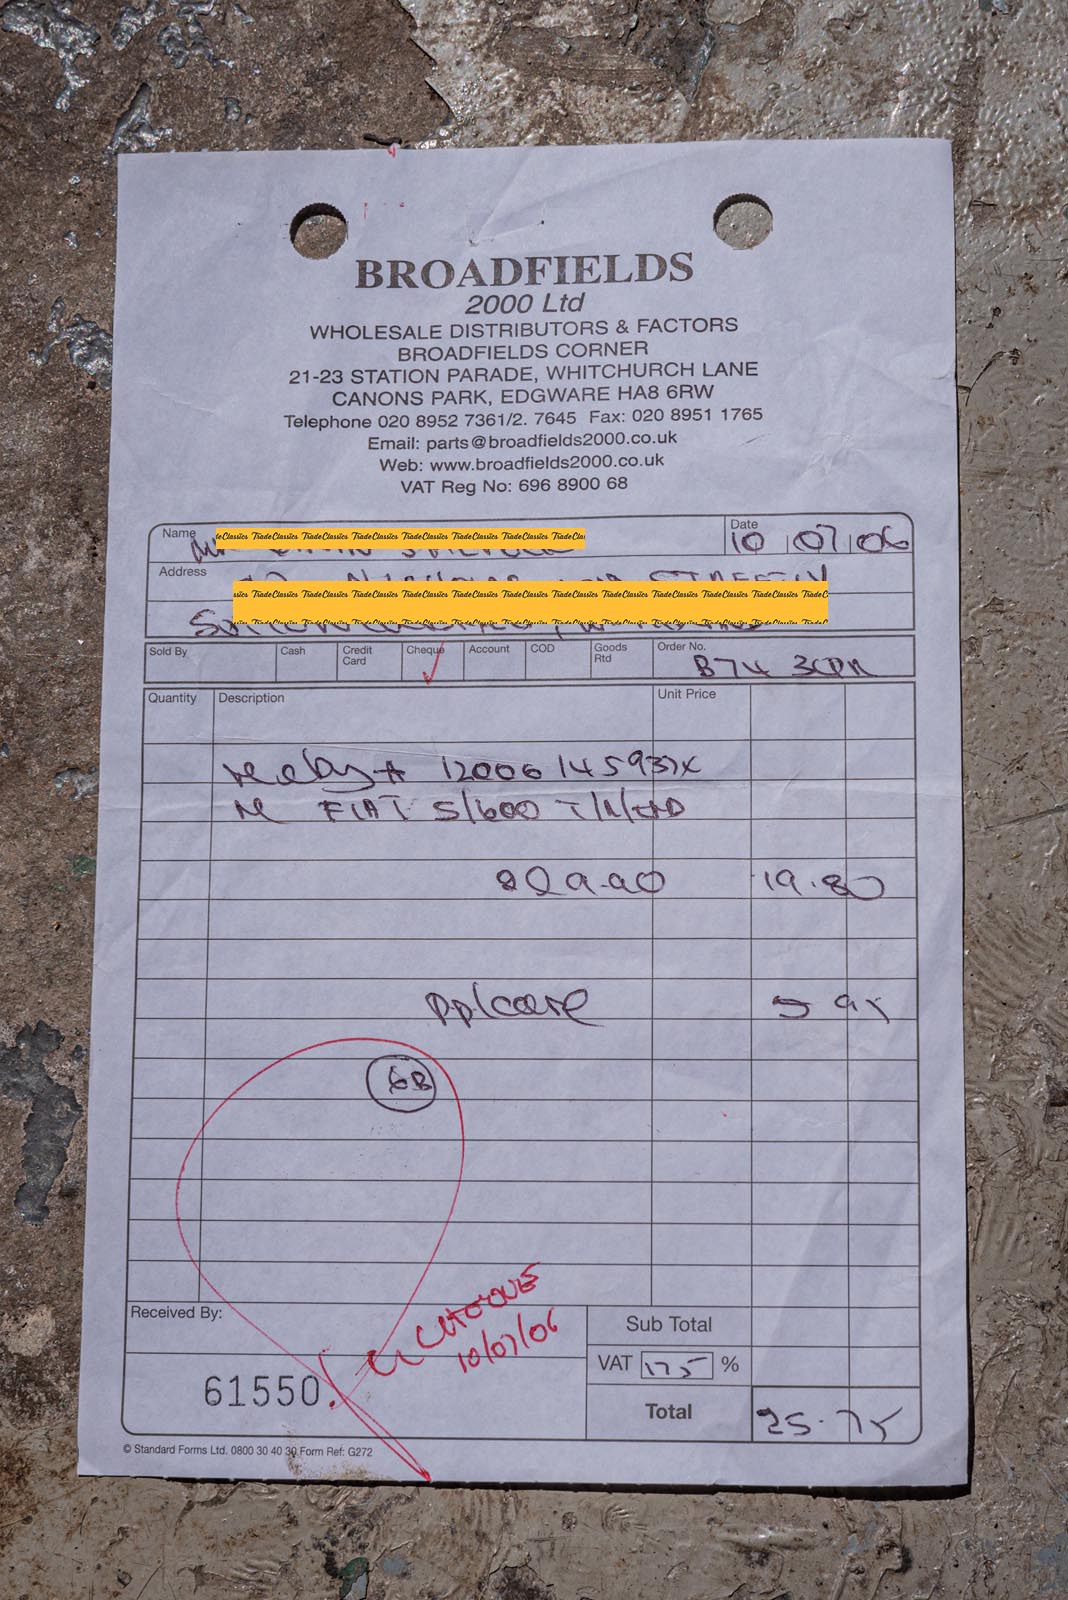 BROADFIELDS
2000 Ltd
WHOLESALE DISTRIBUTORS & FACTORS
BROADFIELDS CORNER
21-23 STATION PARADE, WHITCHURCH LANE
CANONS PARK, EDGWARE HA8 6RW
Telephone 020 8952 7361/2. 7645 Fax: 020 8951 1765
Email: parts@broadfields2000.co.uk
Web: www.broadfields2000.co.uk
VAT Reg No: 696 8900 68
Name TradeClassics TradeClassics TradeClassics Date 10 07 06
Address
TradeClassics TradeClassics TradeClassics TradeClassics TradeClassics TradeClassics TradeClassics TradeClassics TradeClassics TradeClassics TradeClassics
TradeClassics TradeClassics TradeClassics TradeClassics TradeClassics TradeClassics TradeClassics TradeClassics TradeClassics TradeClassics TradeClassics
Sold By Cash Credit Card Cheque Account COD Goods Rtd Order No. B74
Quantity Description Unit Price
FIAT S/600
19.80
5 95
GB
Received By:
CHEQUE
10/07/06
61550
Sub Total
VAT 17.5 %
Total 25.75
© Standard Forms Ltd. 0800 30 40 30 Form Ref: G272